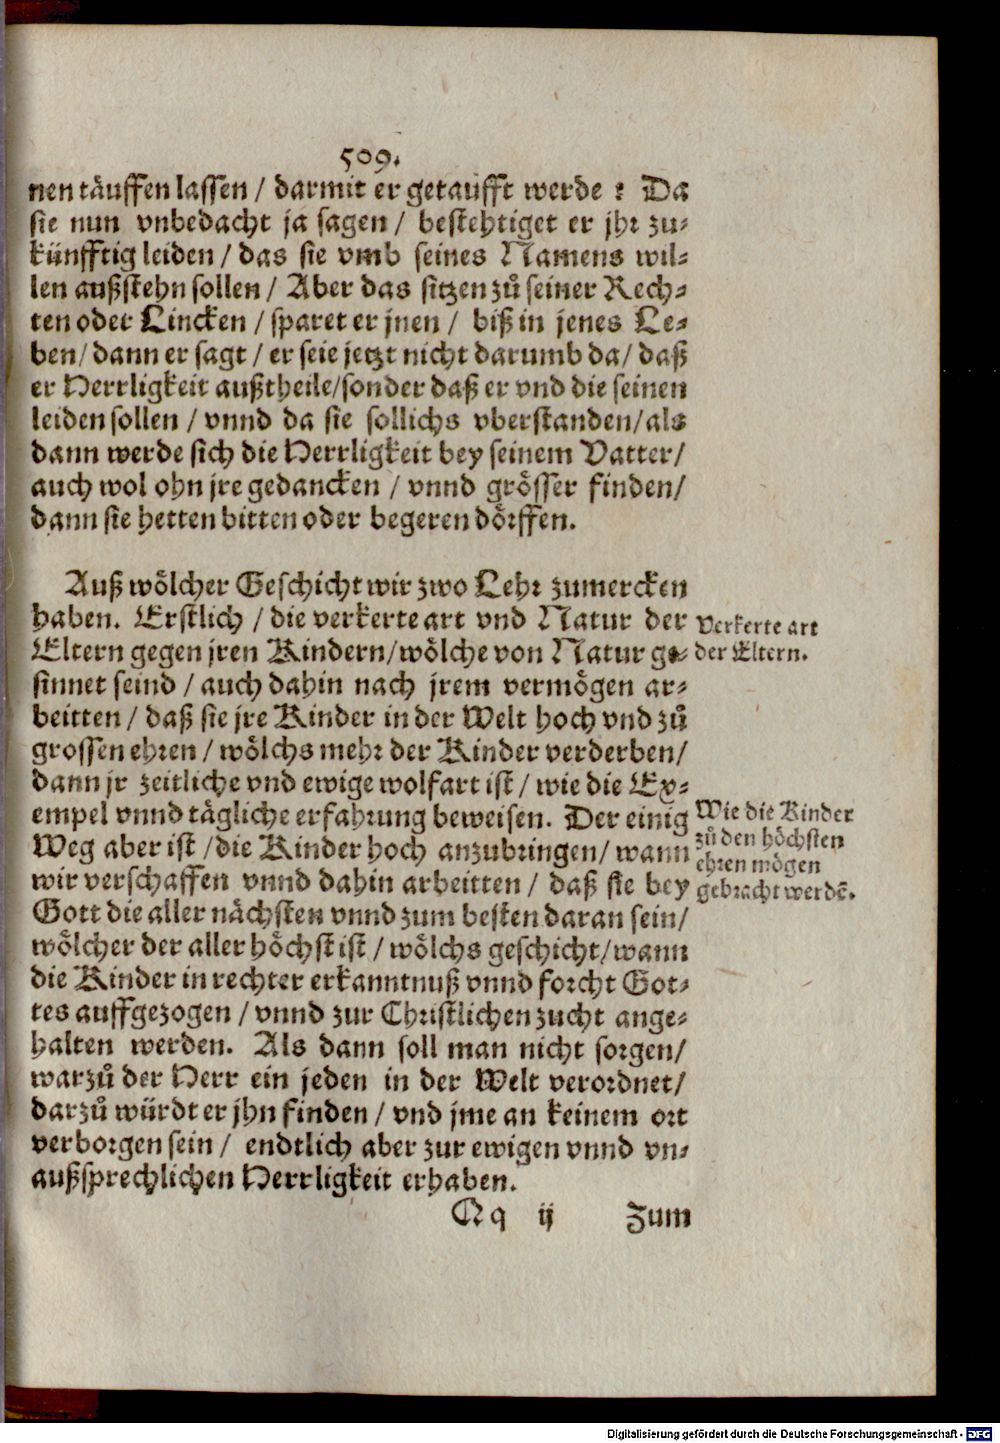 509.
nen täuffen lassen / darmit er getaufft werde ? Da
sie nun vnbedacht ja sagen / bestehtiget er jhr zu⸗
künfftig leiden / das sie vmb seines Namens wil⸗
len außstehn sollen / Aber das sitzen zů seiner Rech⸗
ten oder Lincken / sparet er jnen / biß in jenes Le⸗
ben / dann er sagt / er seie jetzt nicht darumb da / daß
er Herrligkeit außtheile / sonder daß er vnd die seinen
leiden sollen / vnnd da sie sollichs vberstanden / als
dann werde sich die Herrligkeit bey seinem Vatter /
auch wol ohn jre gedancken / vnnd grösser finden /
dann sie hetten bitten oder begeren dörffen.
Auß wölcher Geschicht wir zwo Lehr zumercken
haben. Erstlich / die verkerte art vnd Natur der
Eltern gegen jren Kindern / wölche von Natur ge⸗
sinnet seind / auch dahin nach jrem vermögen ar⸗
beitten / daß sie jre Kinder in der Welt hoch vnd zů
grossen ehren / wölchs mehr der Kinder verderben /
dann jr zeitliche vnd ewige wolfart ist / wie die Ex⸗
empel vnnd tägliche erfahrung beweisen. Der einig
Weg aber ist / die Kinder hoch anzubringen / wann
wir verschaffen vnnd dahin arbeitten / daß sie bey
Gott die aller nächsten vnnd zum besten daran sein /
wölcher der aller höchst ist / wölchs geschicht / wann
die Kinder in rechter erkanntnuß vnnd forcht Got⸗
tes auffgezogen / vnnd zur Christlichen zucht ange⸗
halten werden. Als dann soll man nicht sorgen /
warzů der Herr ein jeden in der Welt verordnet /
darzů würdt er jhn finden / vnd jme an keinem ort
verborgen sein / endtlich aber zur ewigen vnnd vn⸗
außsprechlichen Herrligkeit erhaben.
Verkerte art
der Eltern.
Wie die Kinder
zů den höchsten
ehren mögen
gebracht werdē.
Qq ij Zum
Digitalisierung gefördert durch die Deutsche Forschungsgemeinschaft - DFG